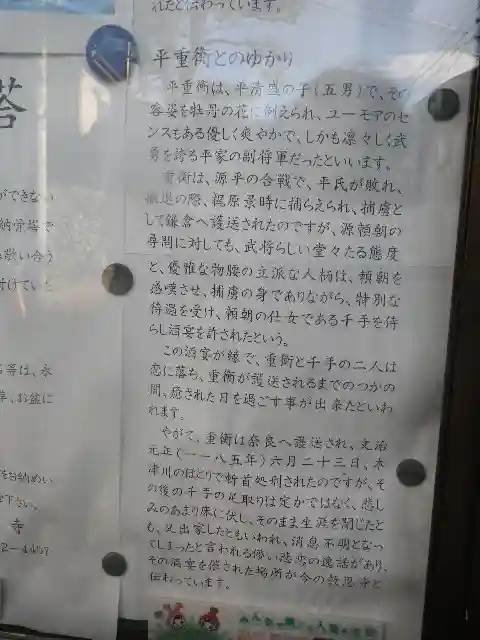 れたと伝わっています。
平重衡とのゆかり
平重衡は、平清盛の子(五男)で、その
容姿を牡丹の花に例えられ、ユーモアのセ
ンスもある優しく爽やかで、しかも凛々しく武
勇を誇る平家の副将軍だったといいます。
重衡は、源平の合戦で、平氏が敗れ、
撤退の際、梶原景時に捕らえられ、捕虜と
して鎌倉へ護送されたのですが、源頼朝の
尋問に対しても、武将らしい堂々たる態度
と、優雅な物腰の立派な人柄は、頼朝を
感嘆させ、捕虜の身でありながら、特別な
待遇を受け、頼朝の仕女である千手を侍
らし酒宴を許されたという。
この酒宴が縁で、重衡と千手の二人は
恋に落ち、重衡が護送されるまでのつかの
間、癒された日を過ごす事が出来たといわ
れます。
やがて、重衡は奈良へ護送され、文治
元年(一一八五年)六月二十三日、木
津川のほとりで斬首処刑されたのですが、そ
の後の千手の足取りは定かではなく、悲し
みのあまり床に伏し、そのまま生涯を閉じたと
も、又出家したともいわれ、消息不明となっ
てしまったと言われる儚い悲恋の逸話があり、
その酒宴を催された場所が今の教恩寺と
伝わっています。
塔
ができない
納骨塔で
歌い合う
付けていた
等は、永
お盆に
をお納めい
下さい。
寺
2-4457